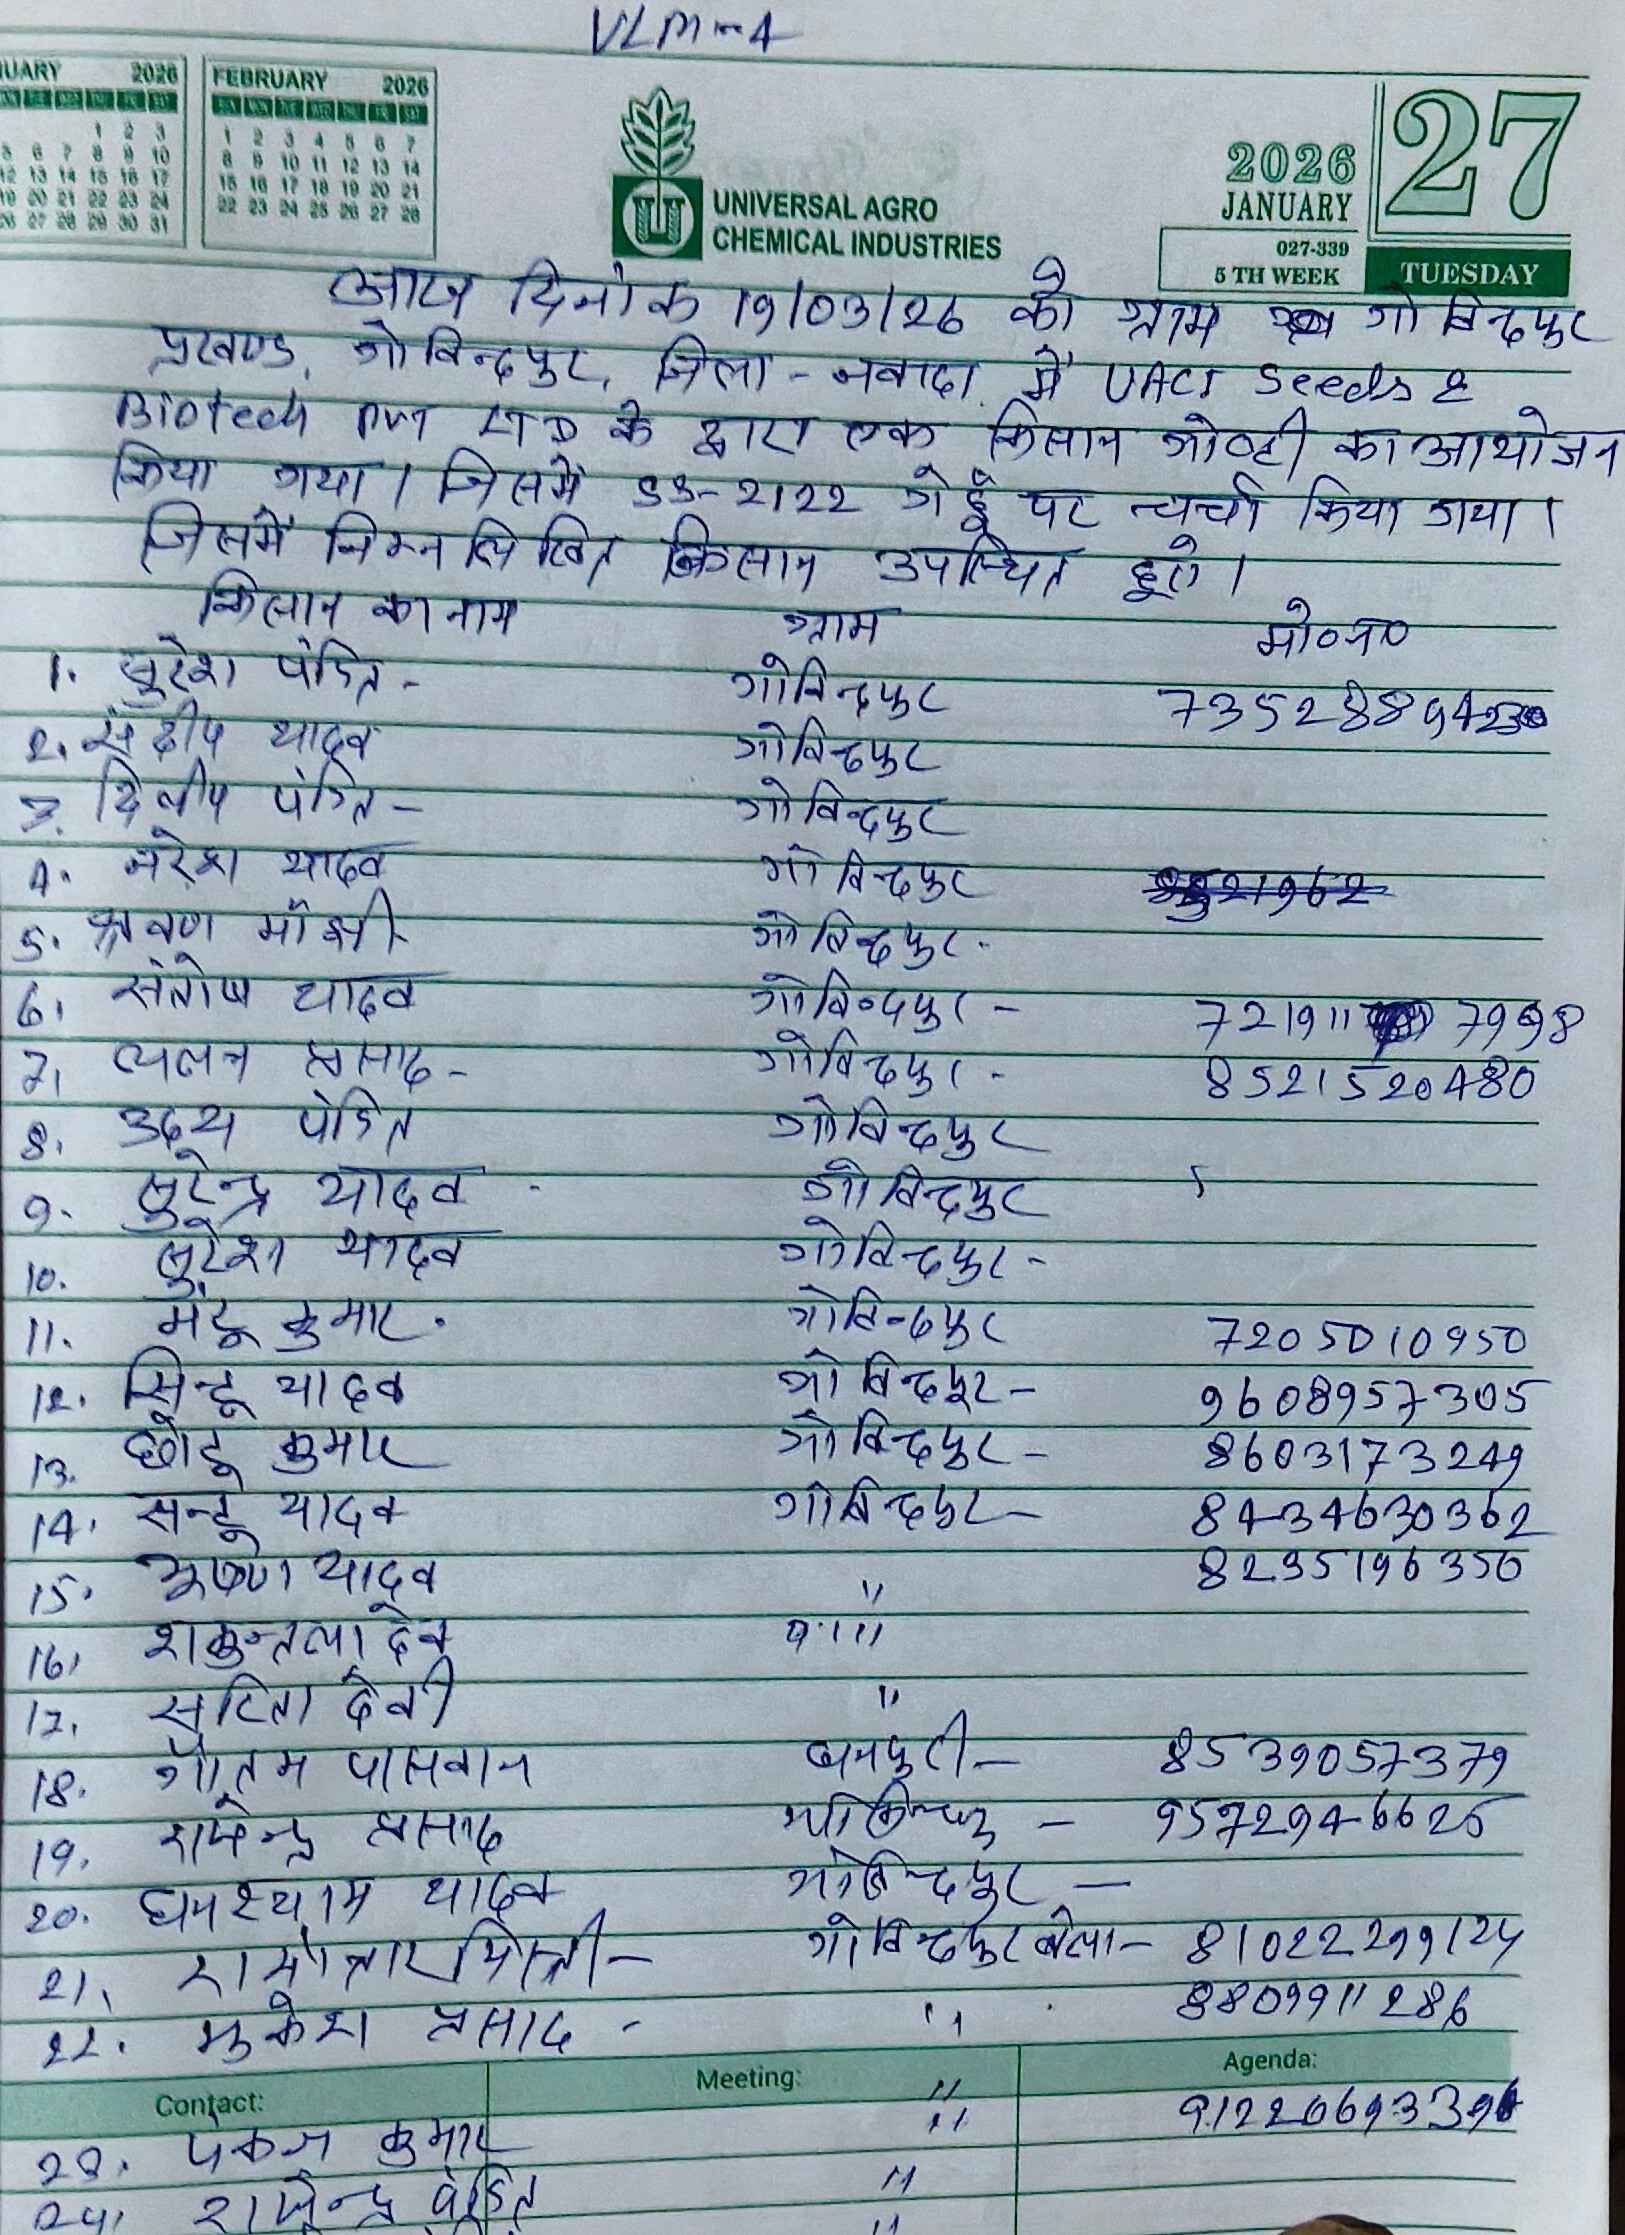 VLM-4
JANUARY 2026
FEBRUARY 2026
SUN MON TUE WED THU FRI SAT
1 2 3
5 6 7 8 9 10
12 13 14 15 16 17
19 20 21 22 23 24
26 27 28 29 30 31
1 2 3 4 5 6 7
8 9 10 11 12 13 14
15 16 17 18 19 20 21
22 23 24 25 26 27 28
UNIVERSAL AGRO
CHEMICAL INDUSTRIES
2026
JANUARY
27
027-339
5 TH WEEK
TUESDAY
आज दिनांक 19/03/26 को ग्राम गोविन्दपुर
प्रखण्ड, गोविन्दपुर, जिला - नवादा में UACI Seeds &
Biotech PVT LTD के द्वारा एक किसान गोष्ठी का आयोजन
किया गया। जिसमें SS-2122 गेहूँ पर चर्चा किया गया।
जिसमें निम्नलिखित किसान उपस्थित हुए।
किसान का नाम ग्राम मो०न०
1. सुरेश पंडित - गोविन्दपुर
2. संदीप यादव गोविन्दपुर
3. दिलीप पंडित - गोविन्दपुर
4. नरेश यादव गोविन्दपुर
5. श्रवण माँझी गोविन्दपुर.
6. संतोष यादव गोविन्दपुर - 721911 7998
7. प्रसाद - गोविन्दपुर - 8521520480
8. उदय पंडित गोविन्दपुर
9. सुरेन्द्र यादव - गोविन्दपुर
10. सुरेश यादव गोविन्दपुर -
11. मंटू कुमार. गोविन्दपुर 7205010950
12. सिन्टू यादव गोविन्दपुर - 9608957305
13. छोटू कुमार गोविन्दपुर - 8603173249
14. सन्टू यादव गोविन्दपुर - 8434630362
15. कृष्णा यादव " 8235196350
16. शकुन्तला देवी "
17. सरिता देवी "
18. गौतम पासवान - 8539057379
19. राजेन्द्र प्रसाद - 9572946625
20. घनश्याम यादव गोविन्दपुर -
21. मिस्त्री - गोविन्दपुर बेला - 81022299124
22. मुकेश प्रसाद - " 8809911286
Contact: Meeting: Agenda:
" 
23. पंकज कुमार "
24. राजेन्द्र पंडित "
"